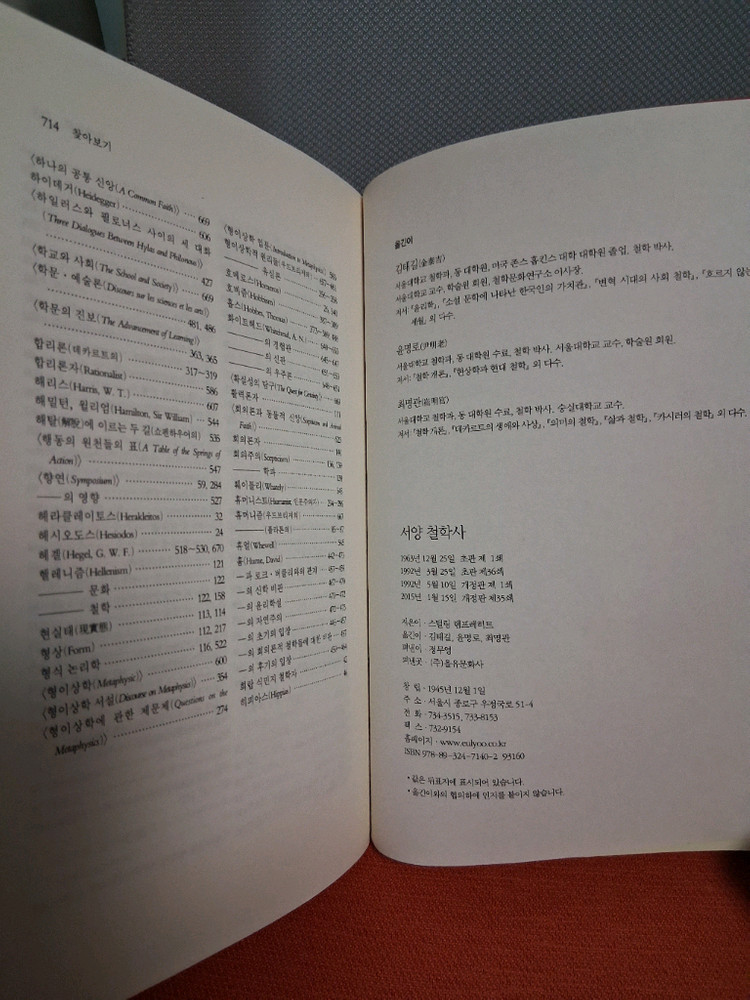 714 찾아보기
〈하나의 공통 신앙(A Common Faith)〉 ···· 669
하이데거(Heidegger) ···· 606
〈하일러스와 필로너스 사이의 세 대화
(Three Dialogues Between Hylas and Philonous)〉
···· 427
〈학교와 사회(The School and Society)〉 ···· 669
〈학문·예술론(Discours sur les sciences et les arts)〉
···· 481, 486
〈학문의 진보(The Advancement of Learning)〉
···· 363, 365
합리론(데카르트의) ···· 317~319
합리론자(Rationalist) ···· 586
해리스(Harris, W. T.) ···· 607
해밀턴, 윌리엄(Hamilton, Sir William) ···· 544
해탈(解脫)에 이르는 두 길(쇼펜하우어의) 536
〈행동의 원천들의 표(A Table of the Springs of
Action)〉 ···· 547
〈향연(Symposium)〉 ···· 59, 284
――의 영향 ···· 527
헤라클레이토스(Herakleitos) ···· 32
헤시오도스(Hesiodos) ···· 24
헤겔(Hegel, G. W. F.) ···· 518~530, 670
헬레니즘(Hellenism) ···· 121
―― 문화 ···· 122
―― 철학 ···· 122, 158
현실태(現實態) ···· 113, 114
형상(Form) ···· 112, 217
형식 논리학 ···· 116, 522
〈형이상학(Metaphysic)〉 ···· 600
〈형이상학 서설(Discourse on Metaphysics)〉 ···· 354
〈형이상학에 관한 제문제(Questions on the
Metaphysics)〉 ···· 274
〈형이상학 입문(Introduction to Metaphysics)〉
형이상학적 원리들(우드브리지의)
―― 유심론
호메로스(Homeros)
호비즘(Hobbism)
홉스(Hobbes, Thomas)
화이트헤드(Whitehead, A. N.)
――의 경험관
――의 신관
――의 우주론
〈확실성의 탐구(The Quest for Certainty)〉
활력론자
〈회의론과 동물적 신앙(Scepticism and Animal
Faith)〉
회의론자
회의주의(Scepticism)
―― 학파
훼이틀리(Whately)
휴머니스트(Humanist, 인문주의자)
휴머니즘(우드브리지의)
――(플라톤의)
휴얼(Whewell)
흄(Hume, David)
―과 로크·버클리와의 관계
―의 신학 비판
―의 윤리학설
―의 자연주의
―의 초기의 입장
―의 회의론적 철학들에 대한 비판
―의 후기의 입장
희랍 식민지 철학자
히피아스(Hippias)
옮긴이
김태길(金泰吉)
서울대학교 철학과, 동 대학원, 미국 존스 홉킨스 대학 대학원 졸업, 철학 박사.
서울대학교 교수, 학술원 회원, 철학문화연구소 이사장.
저서: 『윤리학』, 『소설 문학에 나타난 한국인의 가치관』, 『변혁 시대의 사회 철학』, 『흐르지 않는
세월』 외 다수.
윤명로(尹明老)
서울대학교 철학과, 동 대학원 수료, 철학 박사. 서울대학교 교수, 학술원 회원.
저서: 『철학 개론』, 『현상학과 현대 철학』 외 다수.
최명관(崔明官)
서울대학교 철학과, 동 대학원 수료, 철학 박사. 숭실대학교 교수.
저서: 『철학 개론』, 『데카르트의 생애와 사상』, 『의미의 철학』, 『삶과 철학』, 『카시러의 철학』 외 다수.
서양 철학사
1963년 12월 25일 초판 제 1쇄
1992년 3월 25일 초판 제36쇄
1992년 5월 10일 개정판 제 1쇄
2015년 1월 15일 개정판 제35쇄
지은이·스털링 램프레히트
옮긴이·김태길, 윤명로, 최명관
펴낸이·정무영
펴낸곳·(주)을유문화사
창 립·1945년 12월 1일
주 소·서울시 종로구 우정국로 51-4
전 화·734-3515, 733-8153
팩 스·732-9154
홈페이지·www.eulyoo.co.kr
ISBN 978-89-324-7140-2 93160
*값은 뒤표지에 표시되어 있습니다.
*옮긴이와의 협의하에 인지를 붙이지 않습니다.